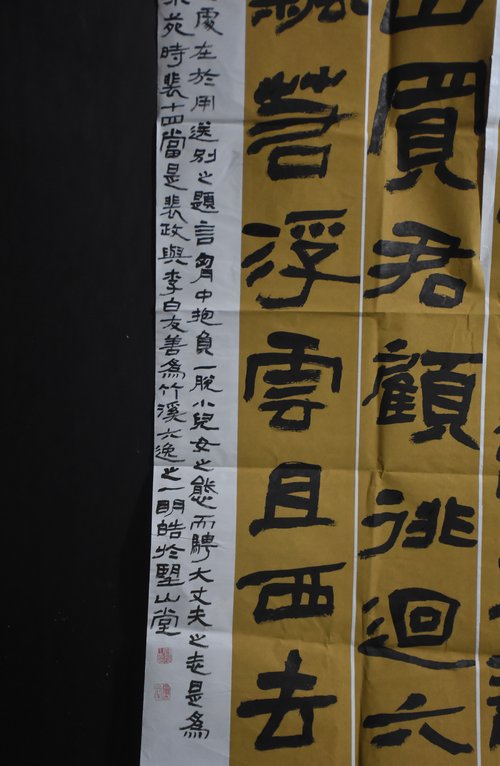 山買君顧徘迴六
飄若浮雲且西去
處在於用送別之題言胸中抱負一脫小兒女之態而騁大丈夫之走是為
苑時裴十四當是裴政與李白友善為竹溪六逸之一明皓於堅山堂